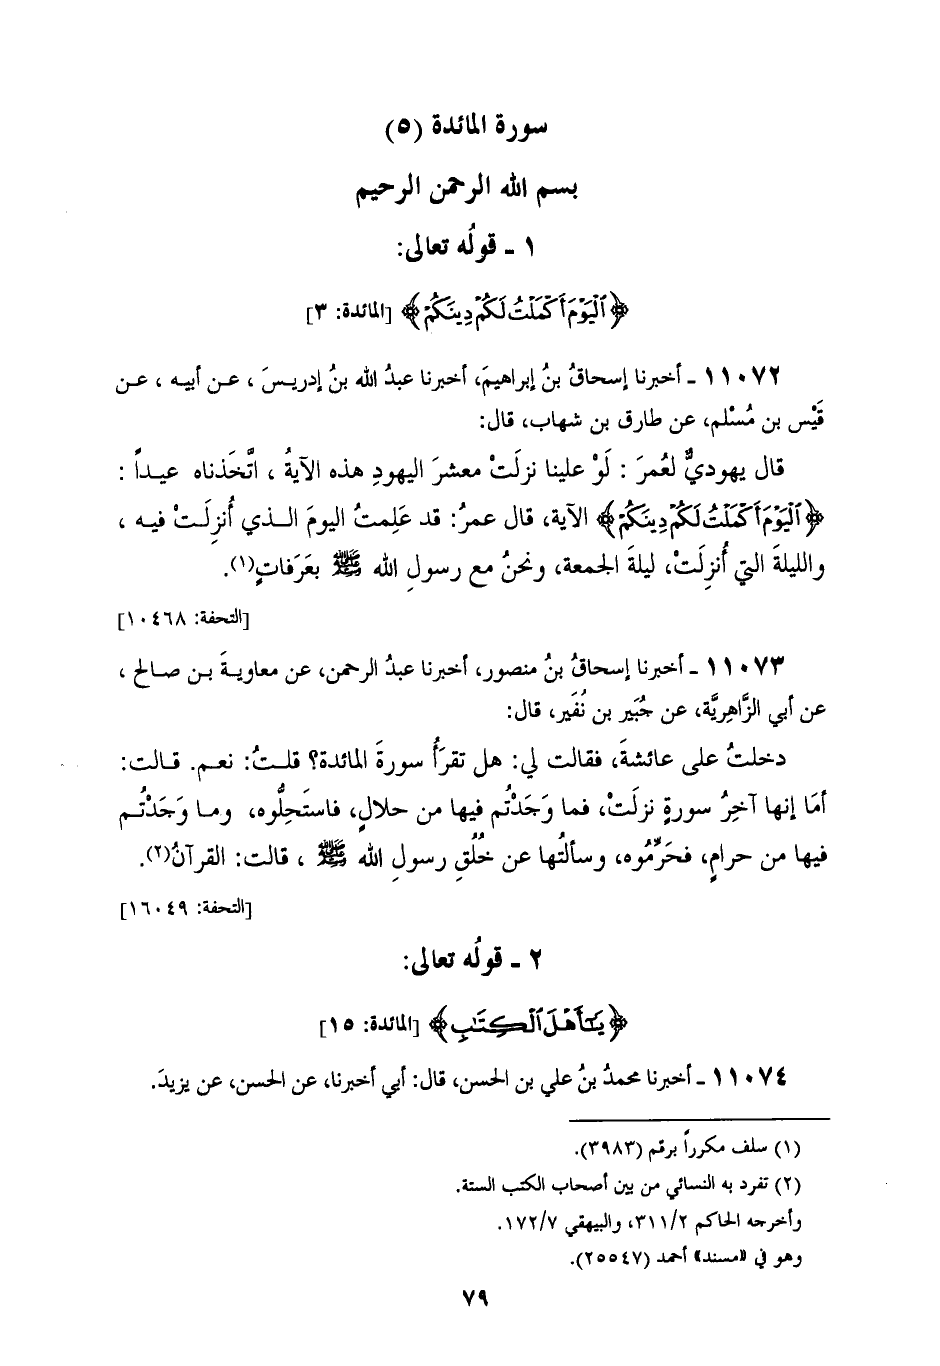 سورة المائدة (٥)
بسم الله الرحمن الرحيم
١ ـ قولُه تعالى:
﴿ٱلْيَوْمَ أَكْمَلْتُ لَكُمْ دِينَكُمْ﴾ [المائدة: ٣]
١١٠٧٢ ـ أخبرنا إسحاقُ بنُ إبراهيمَ، أخبرنا عبدُ الله بنُ إدريسَ، عن أبيه، عن
قَيْس بن مُسْلم، عن طارق بن شهاب، قال:
قال يهوديٌّ لعُمرَ: لَوْ علينا نزلَتْ معشرَ اليهودِ هذه الآيةُ، اتَّخَذناه عيداً:
﴿ٱلْيَوْمَ أَكْمَلْتُ لَكُمْ دِينَكُمْ﴾ الآية، قال عمرُ: قد عَلِمتُ اليومَ الذي أُنزِلَتْ فيه،
والليلةَ التي أُنزِلَتْ، ليلةَ الجمعة، ونحنُ مع رسولِ الله ﷺ بعَرَفاتٍ(١).
[التحفة: ١٠٤٦٨]
١١٠٧٣ ـ أخبرنا إسحاقُ بنُ منصور، أخبرنا عبدُ الرحمن، عن معاويةَ بن صالح،
عن أبي الزَّاهِريَّة، عن جُبَير بن نُفَير، قال:
دخلتُ على عائشةَ، فقالت لي: هل تقرَأُ سورةَ المائدة؟ قلتُ: نعم. قالت:
أمَا إنها آخِرُ سورةٍ نزلَتْ، فما وَجَدْتُم فيها من حلالٍ، فاستَحِلُّوه، وما وَجَدْتُم
فيها من حرامٍ، فحَرِّمُوه، وسألتُها عن خُلُقِ رسولِ الله ﷺ، قالت: القرآنُ(٢).
[التحفة: ١٦٠٤٩]
٢ ـ قولُه تعالى:
﴿يَٰٓأَهْلَ ٱلْكِتَٰبِ﴾ [المائدة: ١٥]
١١٠٧٤ ـ أخبرنا محمدُ بنُ علي بن الحسن، قال: أبي أخبرنا، عن الحسن، عن يزيدَ.
(١) سلف مكرراً برقم (٣٩٨٣).
(٢) تفرد به النسائي من بين أصحاب الكتب الستة.
وأخرجه الحاكم ٣١١/٢، والبيهقي ١٧٢/٧.
وهو في «مسند» أحمد (٢٥٥٤٧).
٧٩